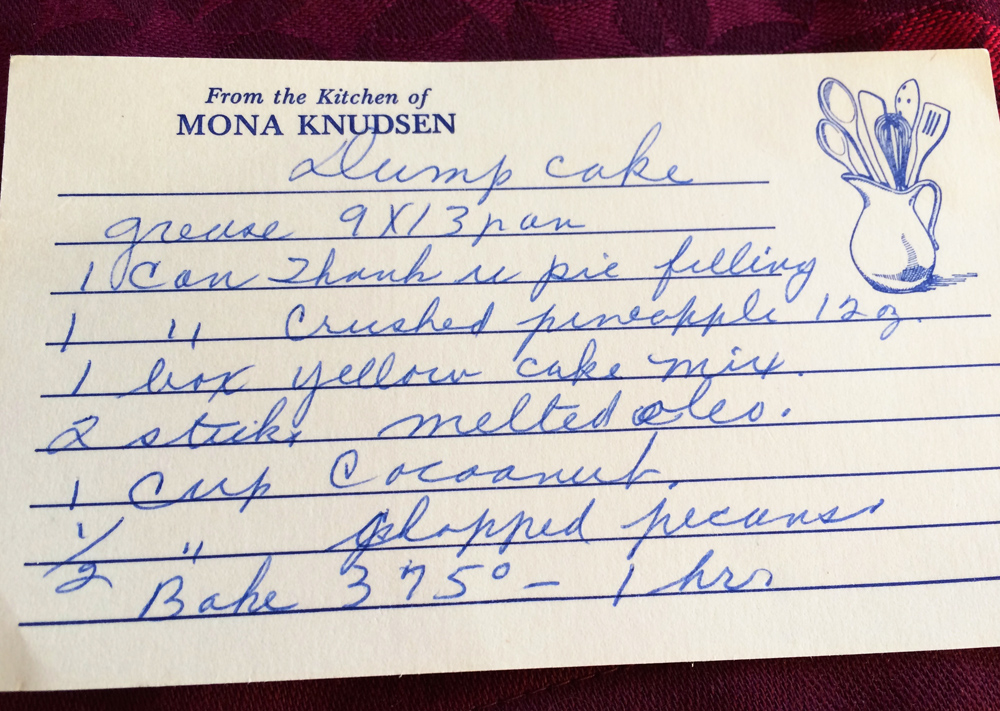 From the Kitchen of
MONA KNUDSEN
Dump cake
grease 9X13 pan
1 Can Thank u pie filling
1 " Crushed pineapple 12 oz.
1 box yellow cake mix.
2 sticks melted oleo.
1 Cup Cocoanut.
1/2 " chopped pecans.
Bake 375° - 1 hr